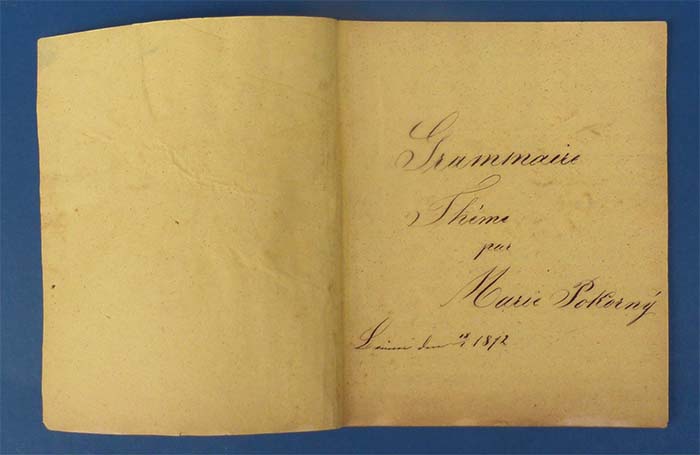 Grammaire
Thème
par
Marie Pokorný
1892